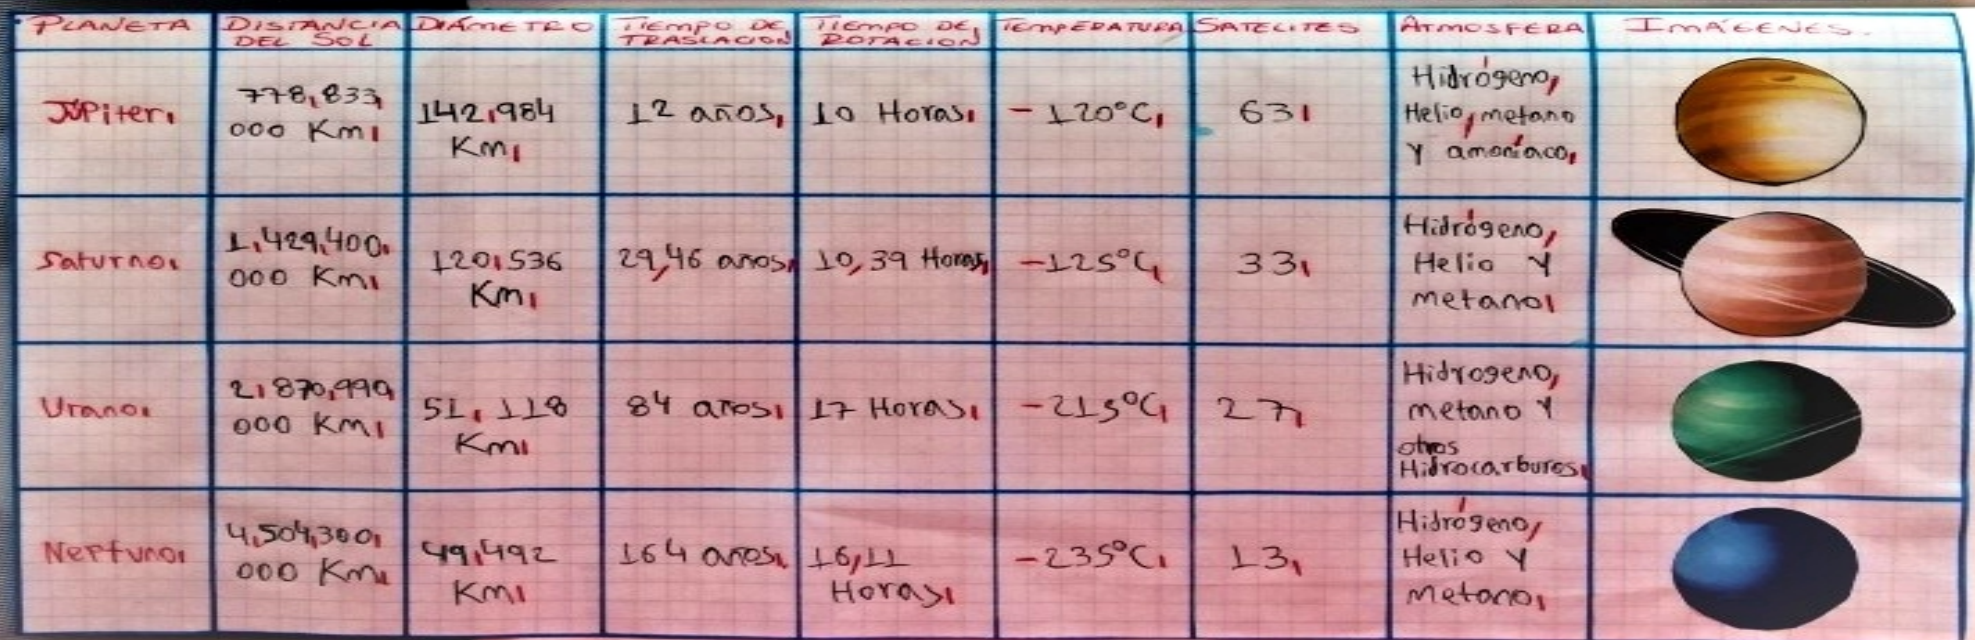 PLANETA DISTANCIA DEL SOL DIÁMETRO TIEMPO DE TRASLACIÓN TIEMPO DE ROTACIÓN TEMPERATURA SATELITES ATMOSFERA IMÁGENES.
Júpiter, 778,833, 000 Km, 142,984 Km, 12 años, 10 Horas, -120°C, 63, Hidrógeno, Helio, metano y amoníaco,
Saturno, 1,429,400, 000 Km, 120,536 Km, 29,46 años, 10,39 Horas, -125°C, 33, Hidrógeno, Helio y metano,
Urano, 2,870,990, 000 Km, 51,118 Km, 84 años, 17 Horas, -215°C, 27, Hidrogeno, metano y otros Hidrocarburos,
Neptuno, 4,504,300, 000 Km, 49,492 Km, 164 años, 16,11 Horas, -235°C, 13, Hidrógeno, Helio y metano,